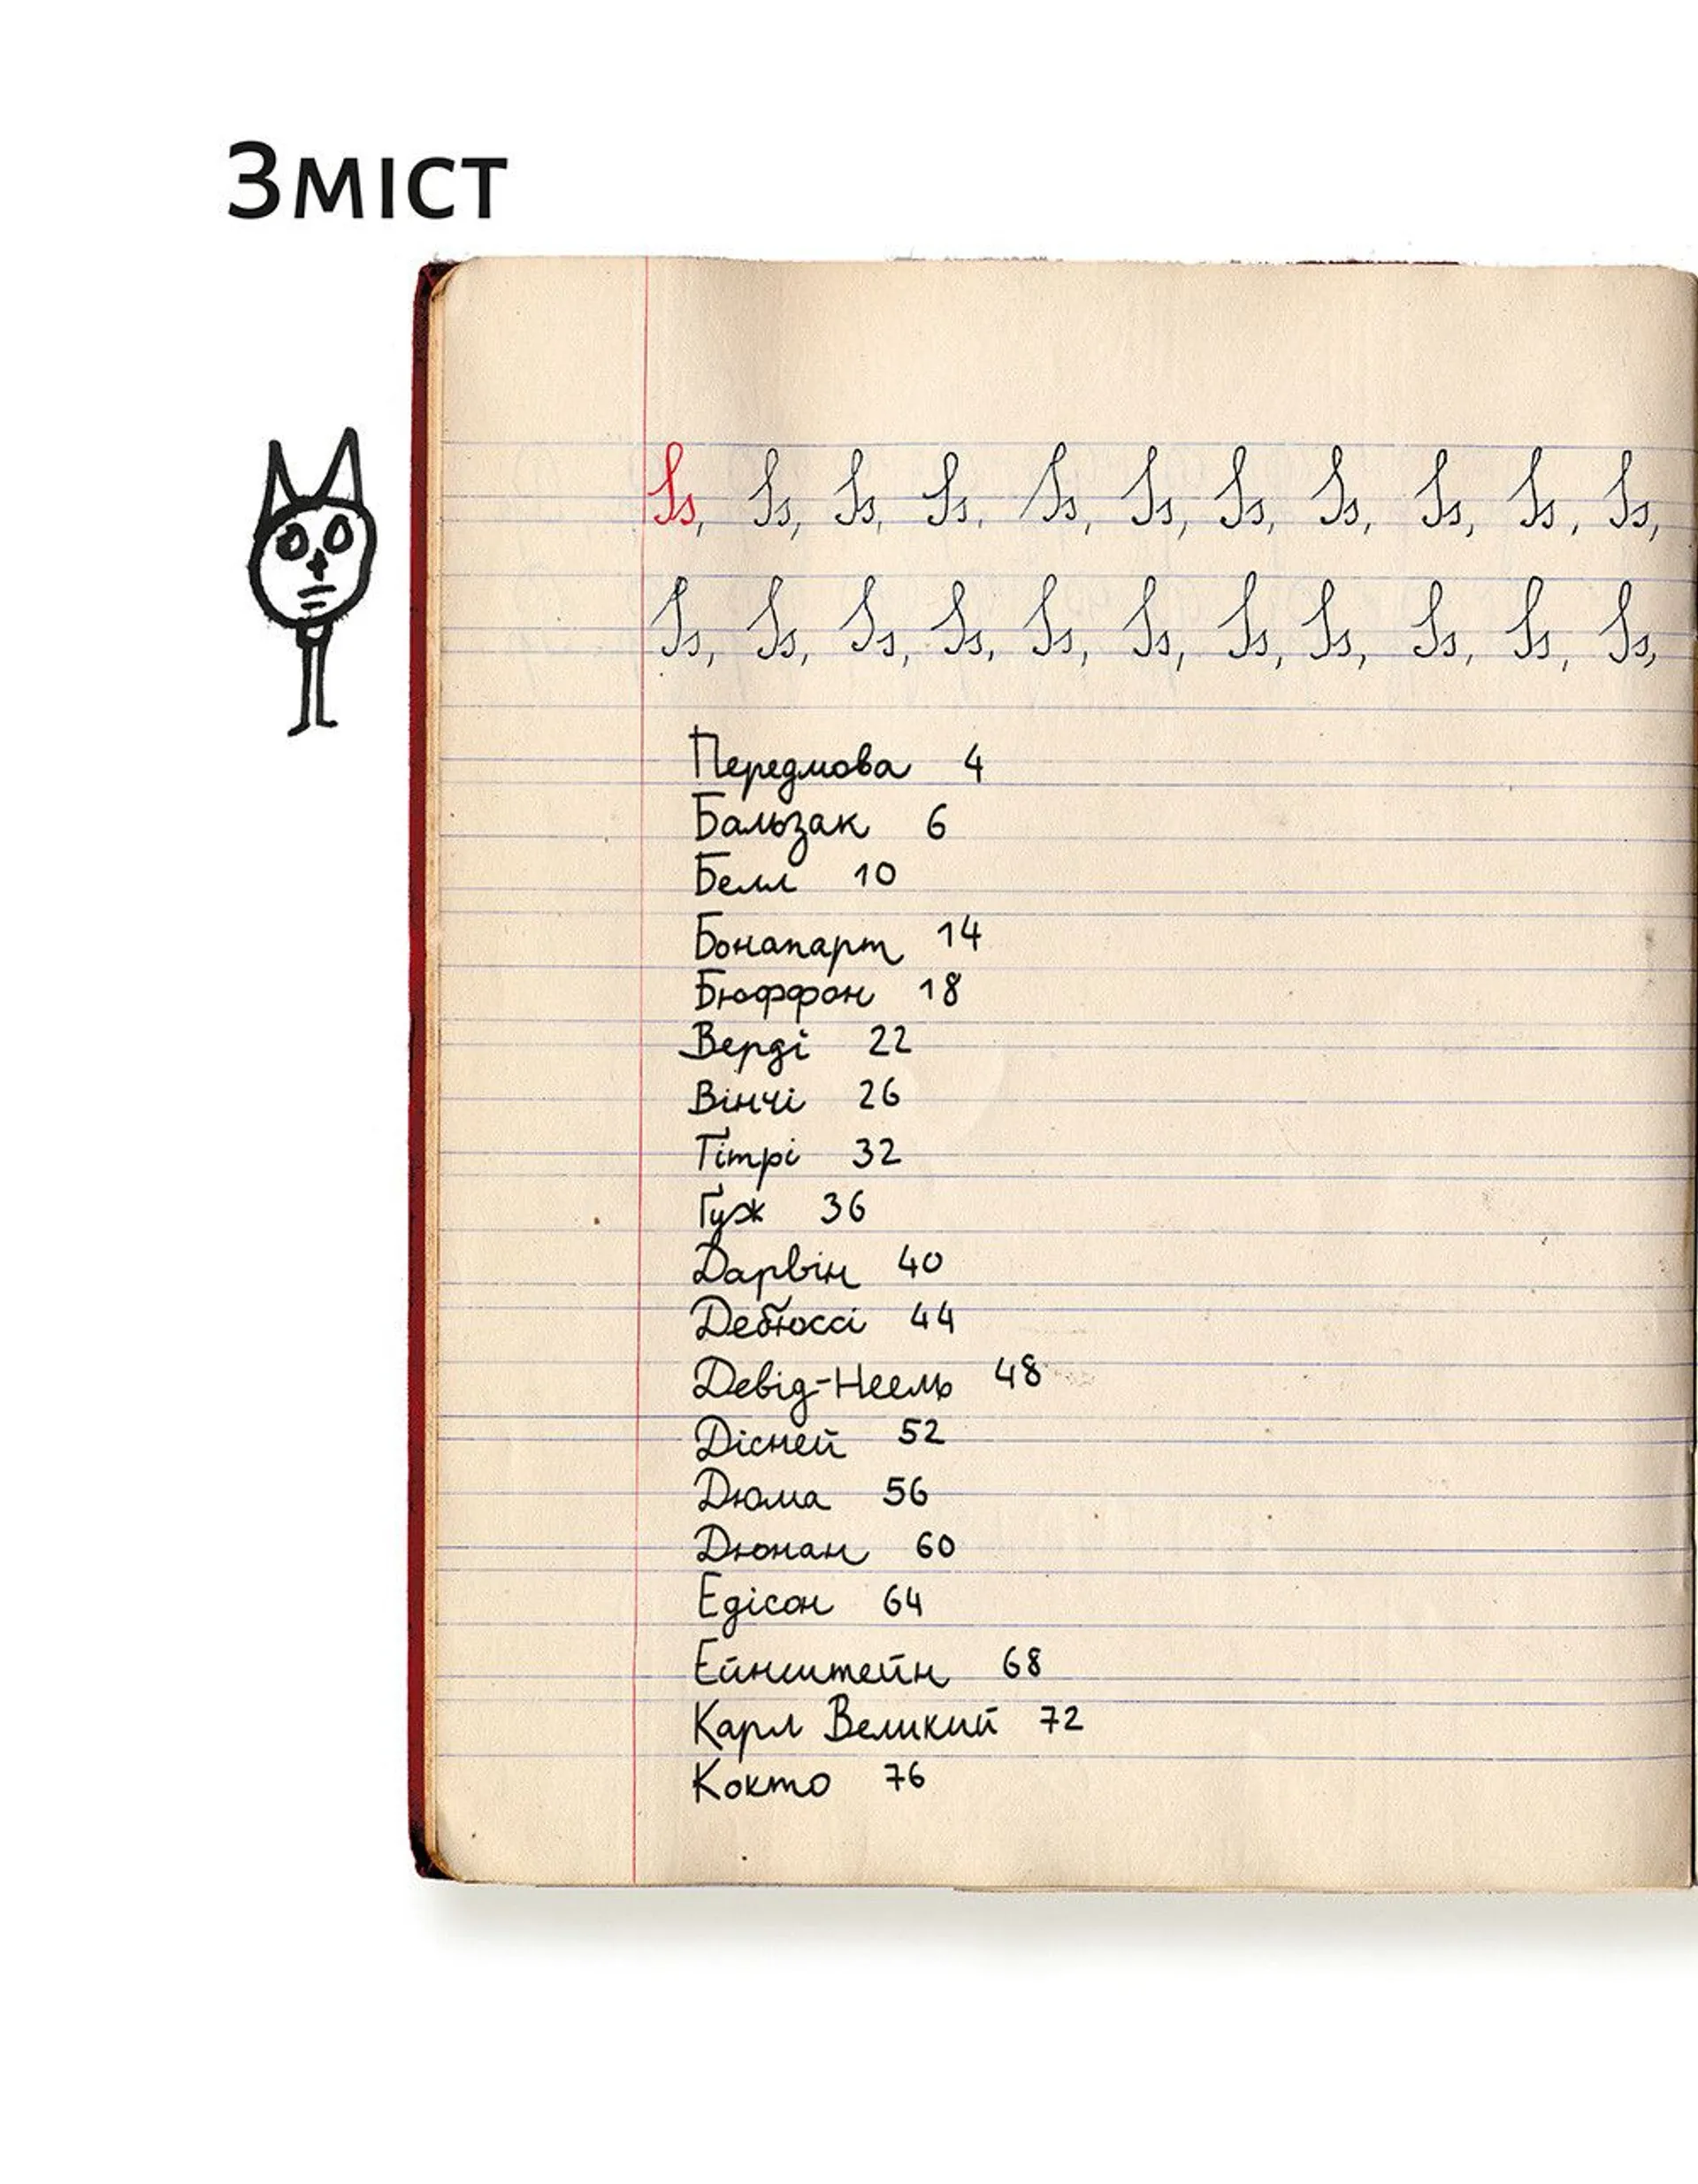 Зміст
Ss, Ss, Ss, Ss, Ss, Ss, Ss, Ss, Ss, Ss, Ss,
Ss, Ss, Ss, Ss, Ss, Ss, Ss, Ss, Ss, Ss, Ss,
Передмова 4
Бальзак 6
Белл 10
Бонапарт 14
Бюффон 18
Верді 22
Вінчі 26
Ґітрі 32
Ґуж 36
Дарвін 40
Дебюссі 44
Девід-Неель 48
Дісней 52
Дюма 56
Дюнан 60
Едісон 64
Ейнштейн 68
Карл Великий 72
Кокто 76